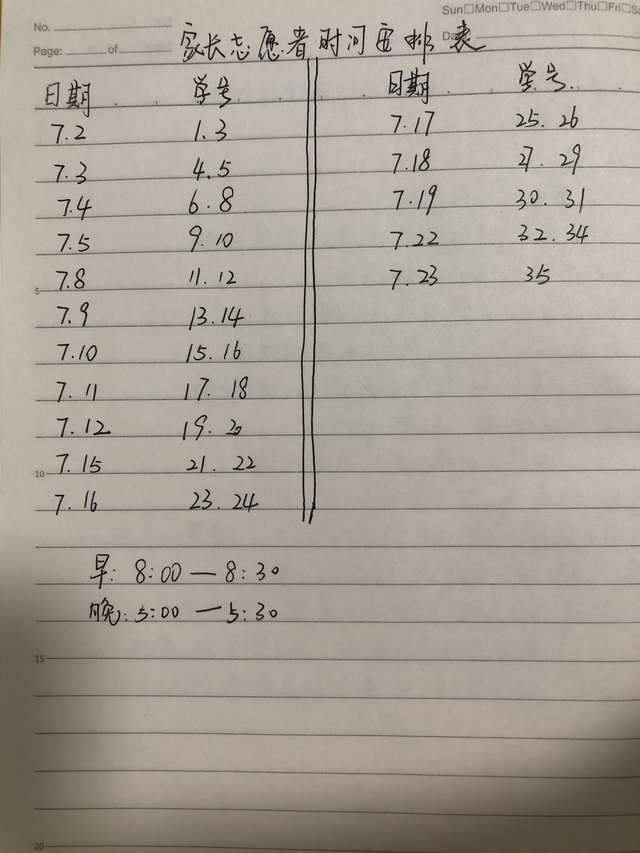 Sun□Mon□Tue□Wed□Thu□Fri□Sa
No.
Page: of
Da
家长志愿者时间安排表
日期 学号
7.2 1.3
7.3 4.5
7.4 6.8
7.5 9.10
5
7.8 11.12
7.9 13.14
7.10 15.16
7.11 17.18
7.12 19.20
10
7.15 21.22
7.16 23.24
日期 学号
7.17 25.26
7.18 27.29
7.19 30.31
7.22 32.34
7.23 35
早: 8:00—8:30
晚: 5:00—5:30
15
20